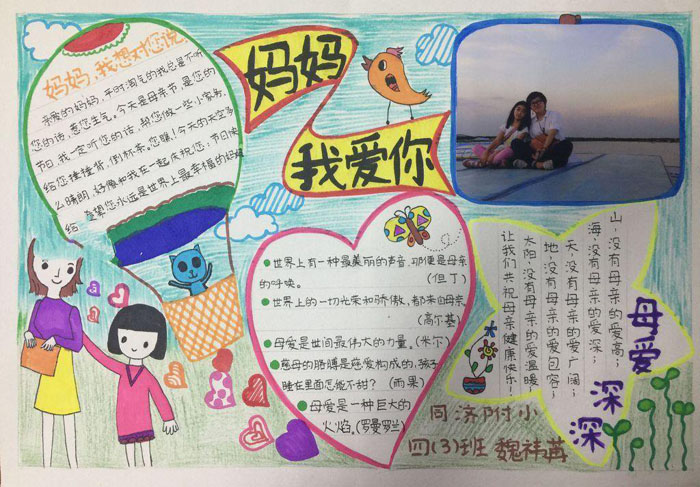 妈妈，我想对您说
亲爱的妈妈，平时淘气的我总是不听
您的话，惹您生气。今天是母亲节，是您的
节日，我一定听您的话，帮您做一些小家务，
给您捶捶背，倒杯茶。您瞧！今天的天空多
么晴朗，好像和我在一起庆祝您：节日快
妈妈
我爱你
世界上有一种最美丽的声音，那便是母亲
的呼唤。（但丁）
世界上的一切光荣和骄傲，都来自母亲
（高尔基）
母爱是世间最伟大的力量。（米尔）
慈母的胳膊是慈爱构成的，孩子
睡在里面怎能不甜？（雨果）
母爱是一种巨大的
火焰。（罗曼罗兰）
山，没有母亲的爱高；
海，没有母亲的爱深；
天，没有母亲的爱广阔；
地，没有母亲的爱包容；
太阳，没有母亲的爱温暖；
让我们共祝母亲健康快乐！
母爱深深
同济附小
四（3）班 魏祎苒